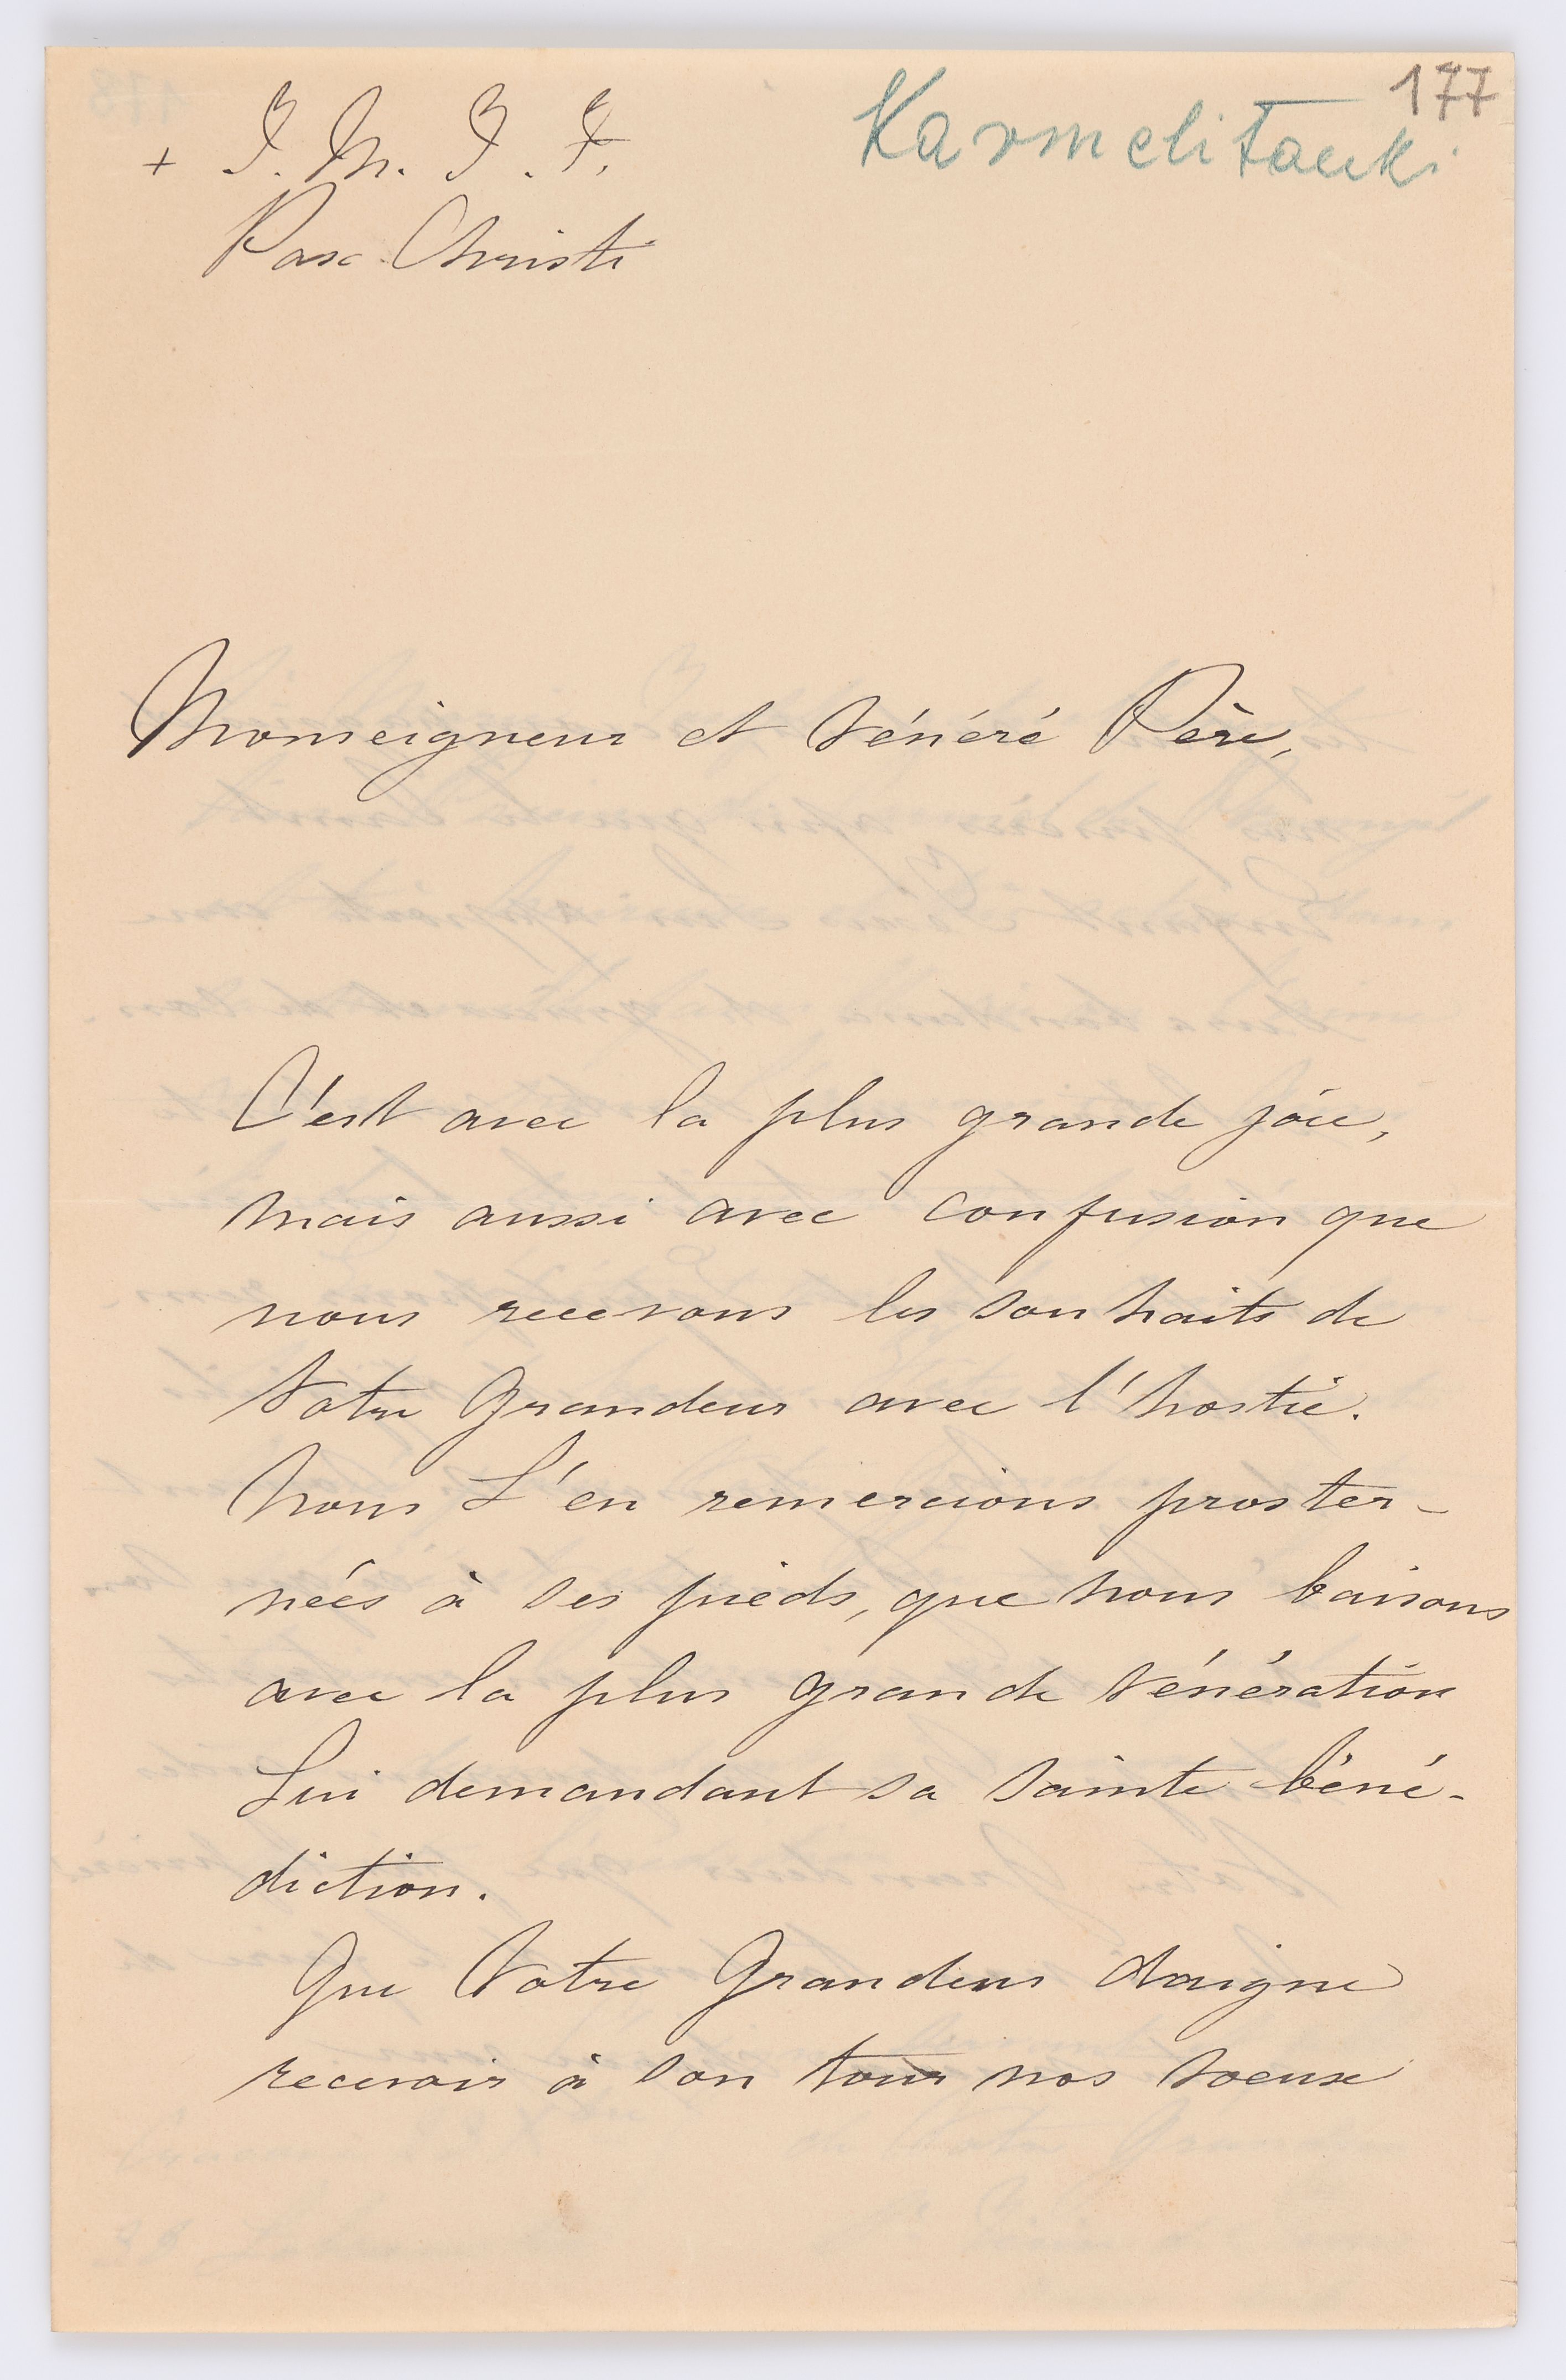 177
Karmelitanki
+ J. M. J. T.
Pax Christi
Monseigneur et Vénéré Père,
C'est avec la plus grande joie,
mais aussi avec confusion que
nous recevons les souhaits de
Votre Grandeur avec l'hostie.
Nous L'en remercions proster-
nées à ses pieds, que nous baisons
avec la plus grande vénération
Lui demandant sa sainte béné-
diction.
Que Votre Grandeur daigne
recevoir à son tour nos voeux